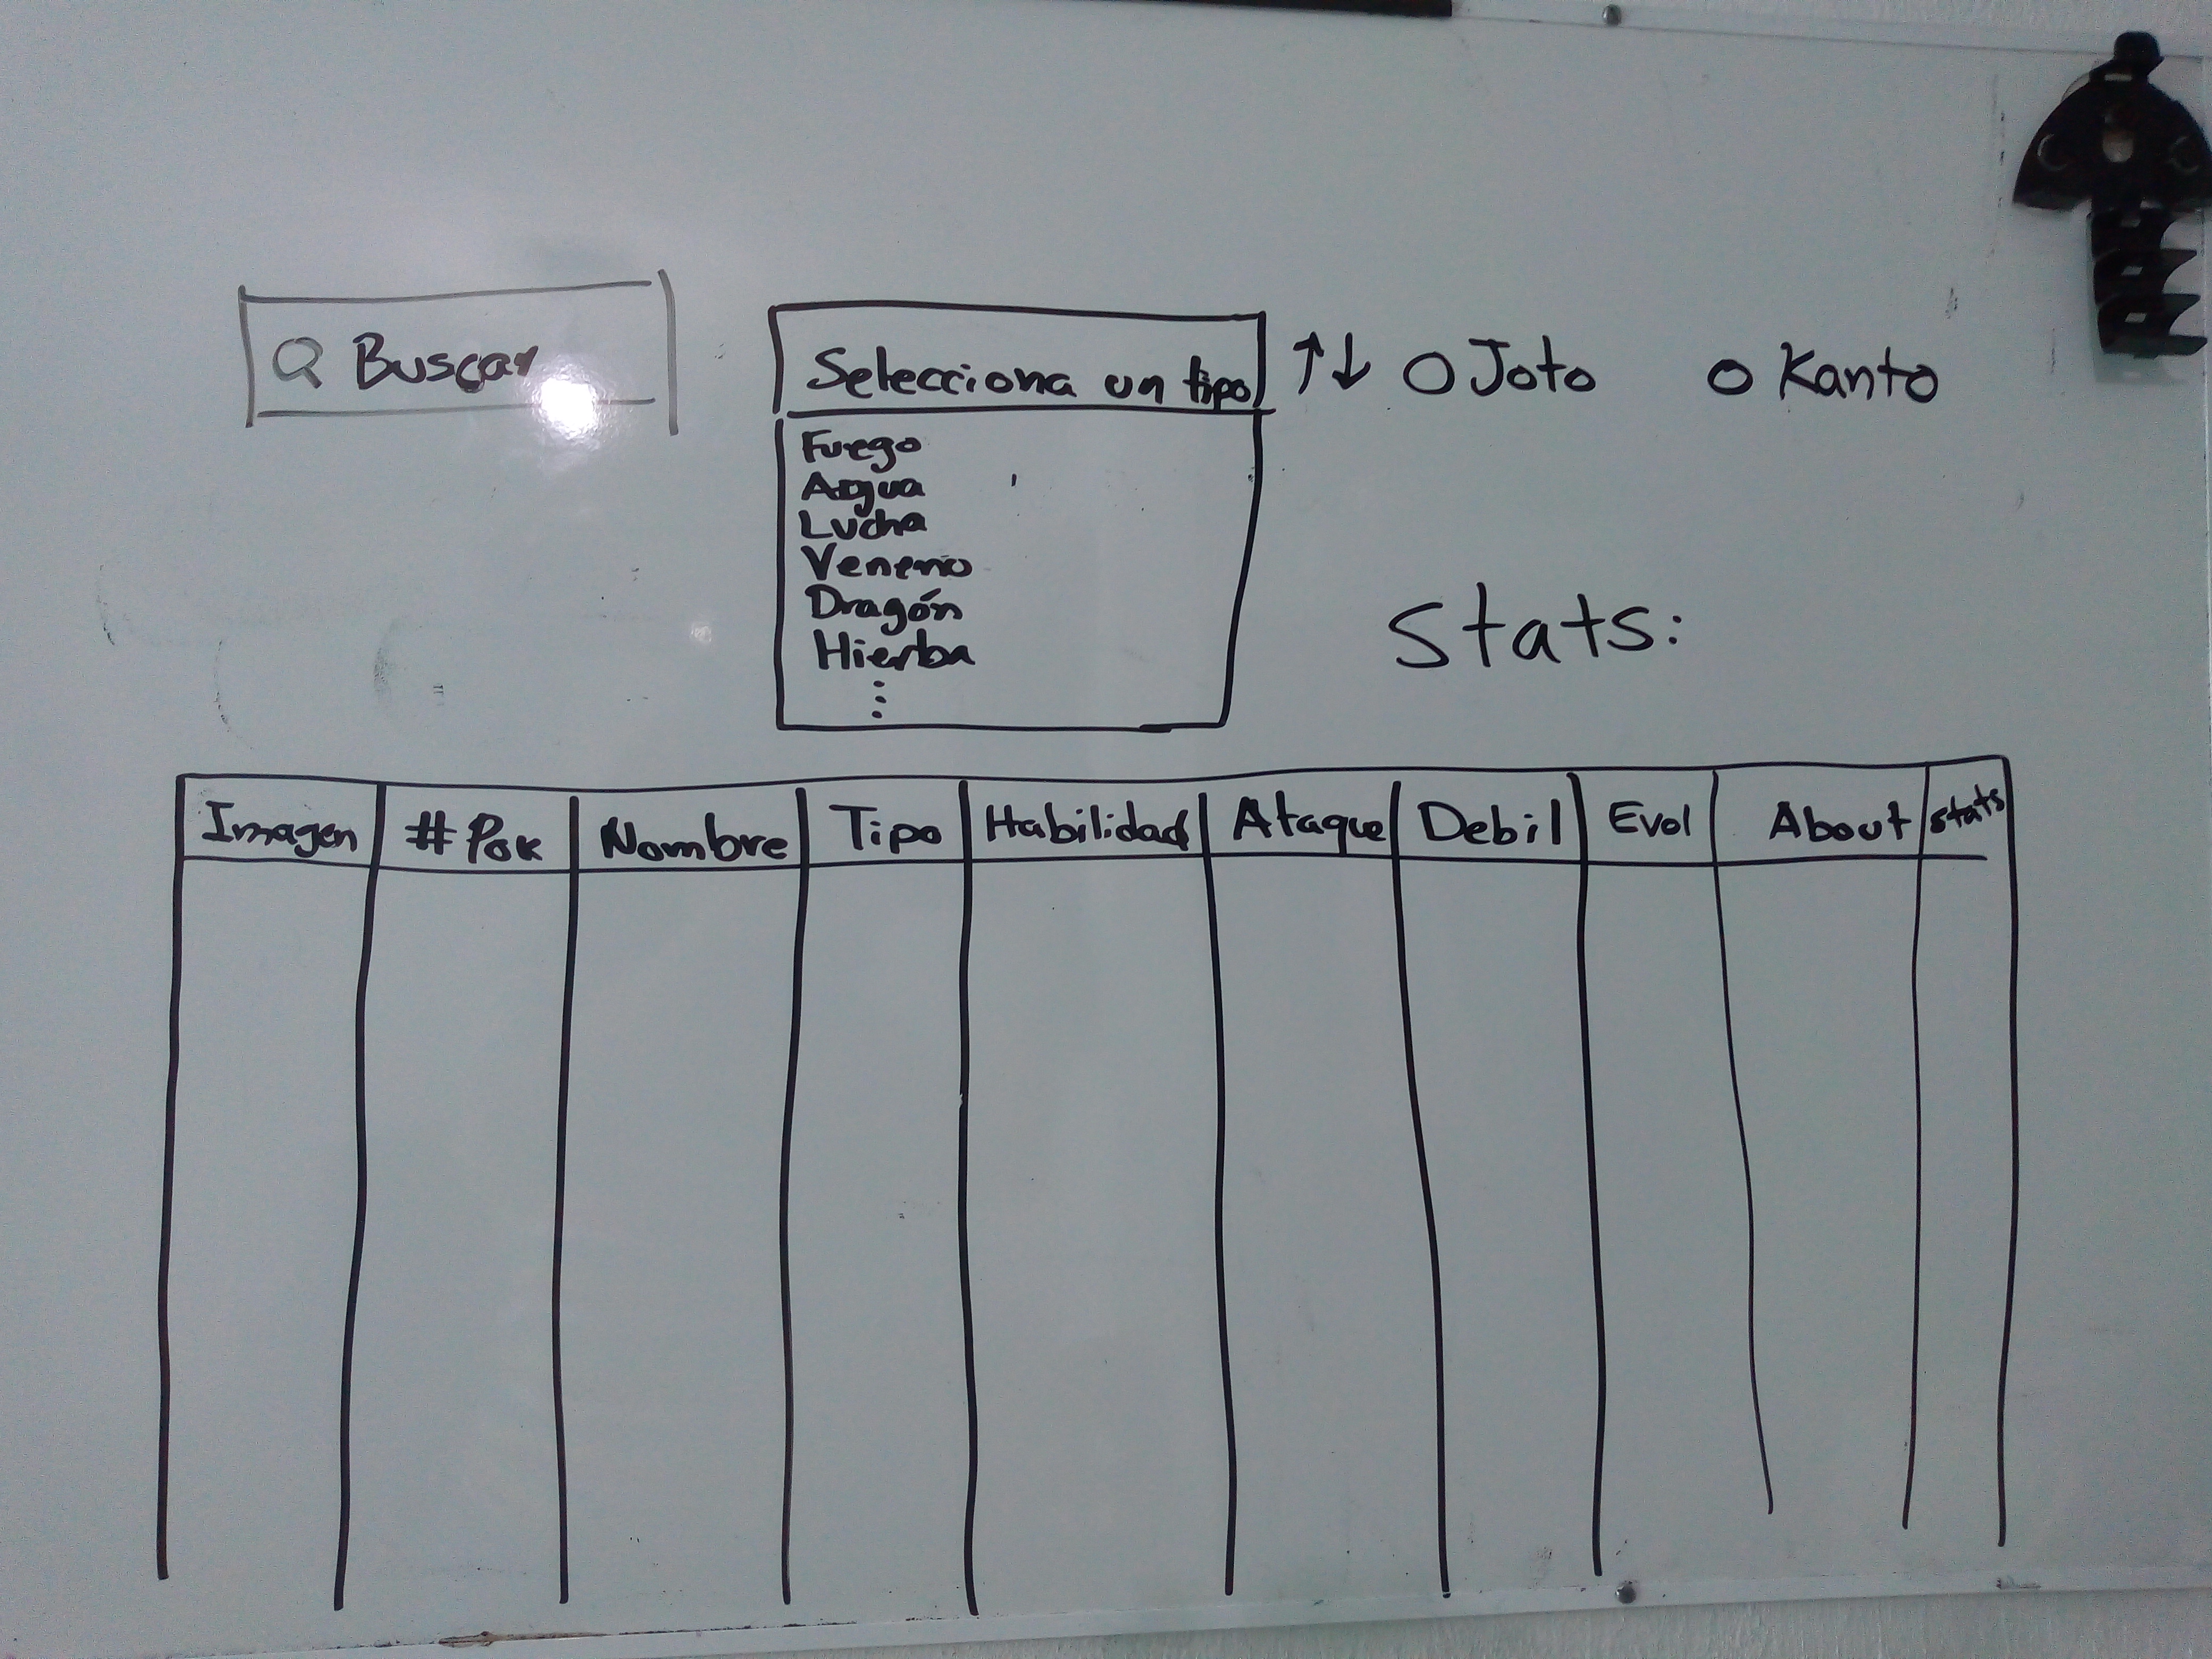 Buscar
Selecciona un tipo ↑↓ O Joto O Kanto
Fuego
Agua
Lucha
Veneno
Dragón
Hierba
⋮
Stats:
Imagen #Pok Nombre Tipo Habilidad Ataque Debil Evol About stats